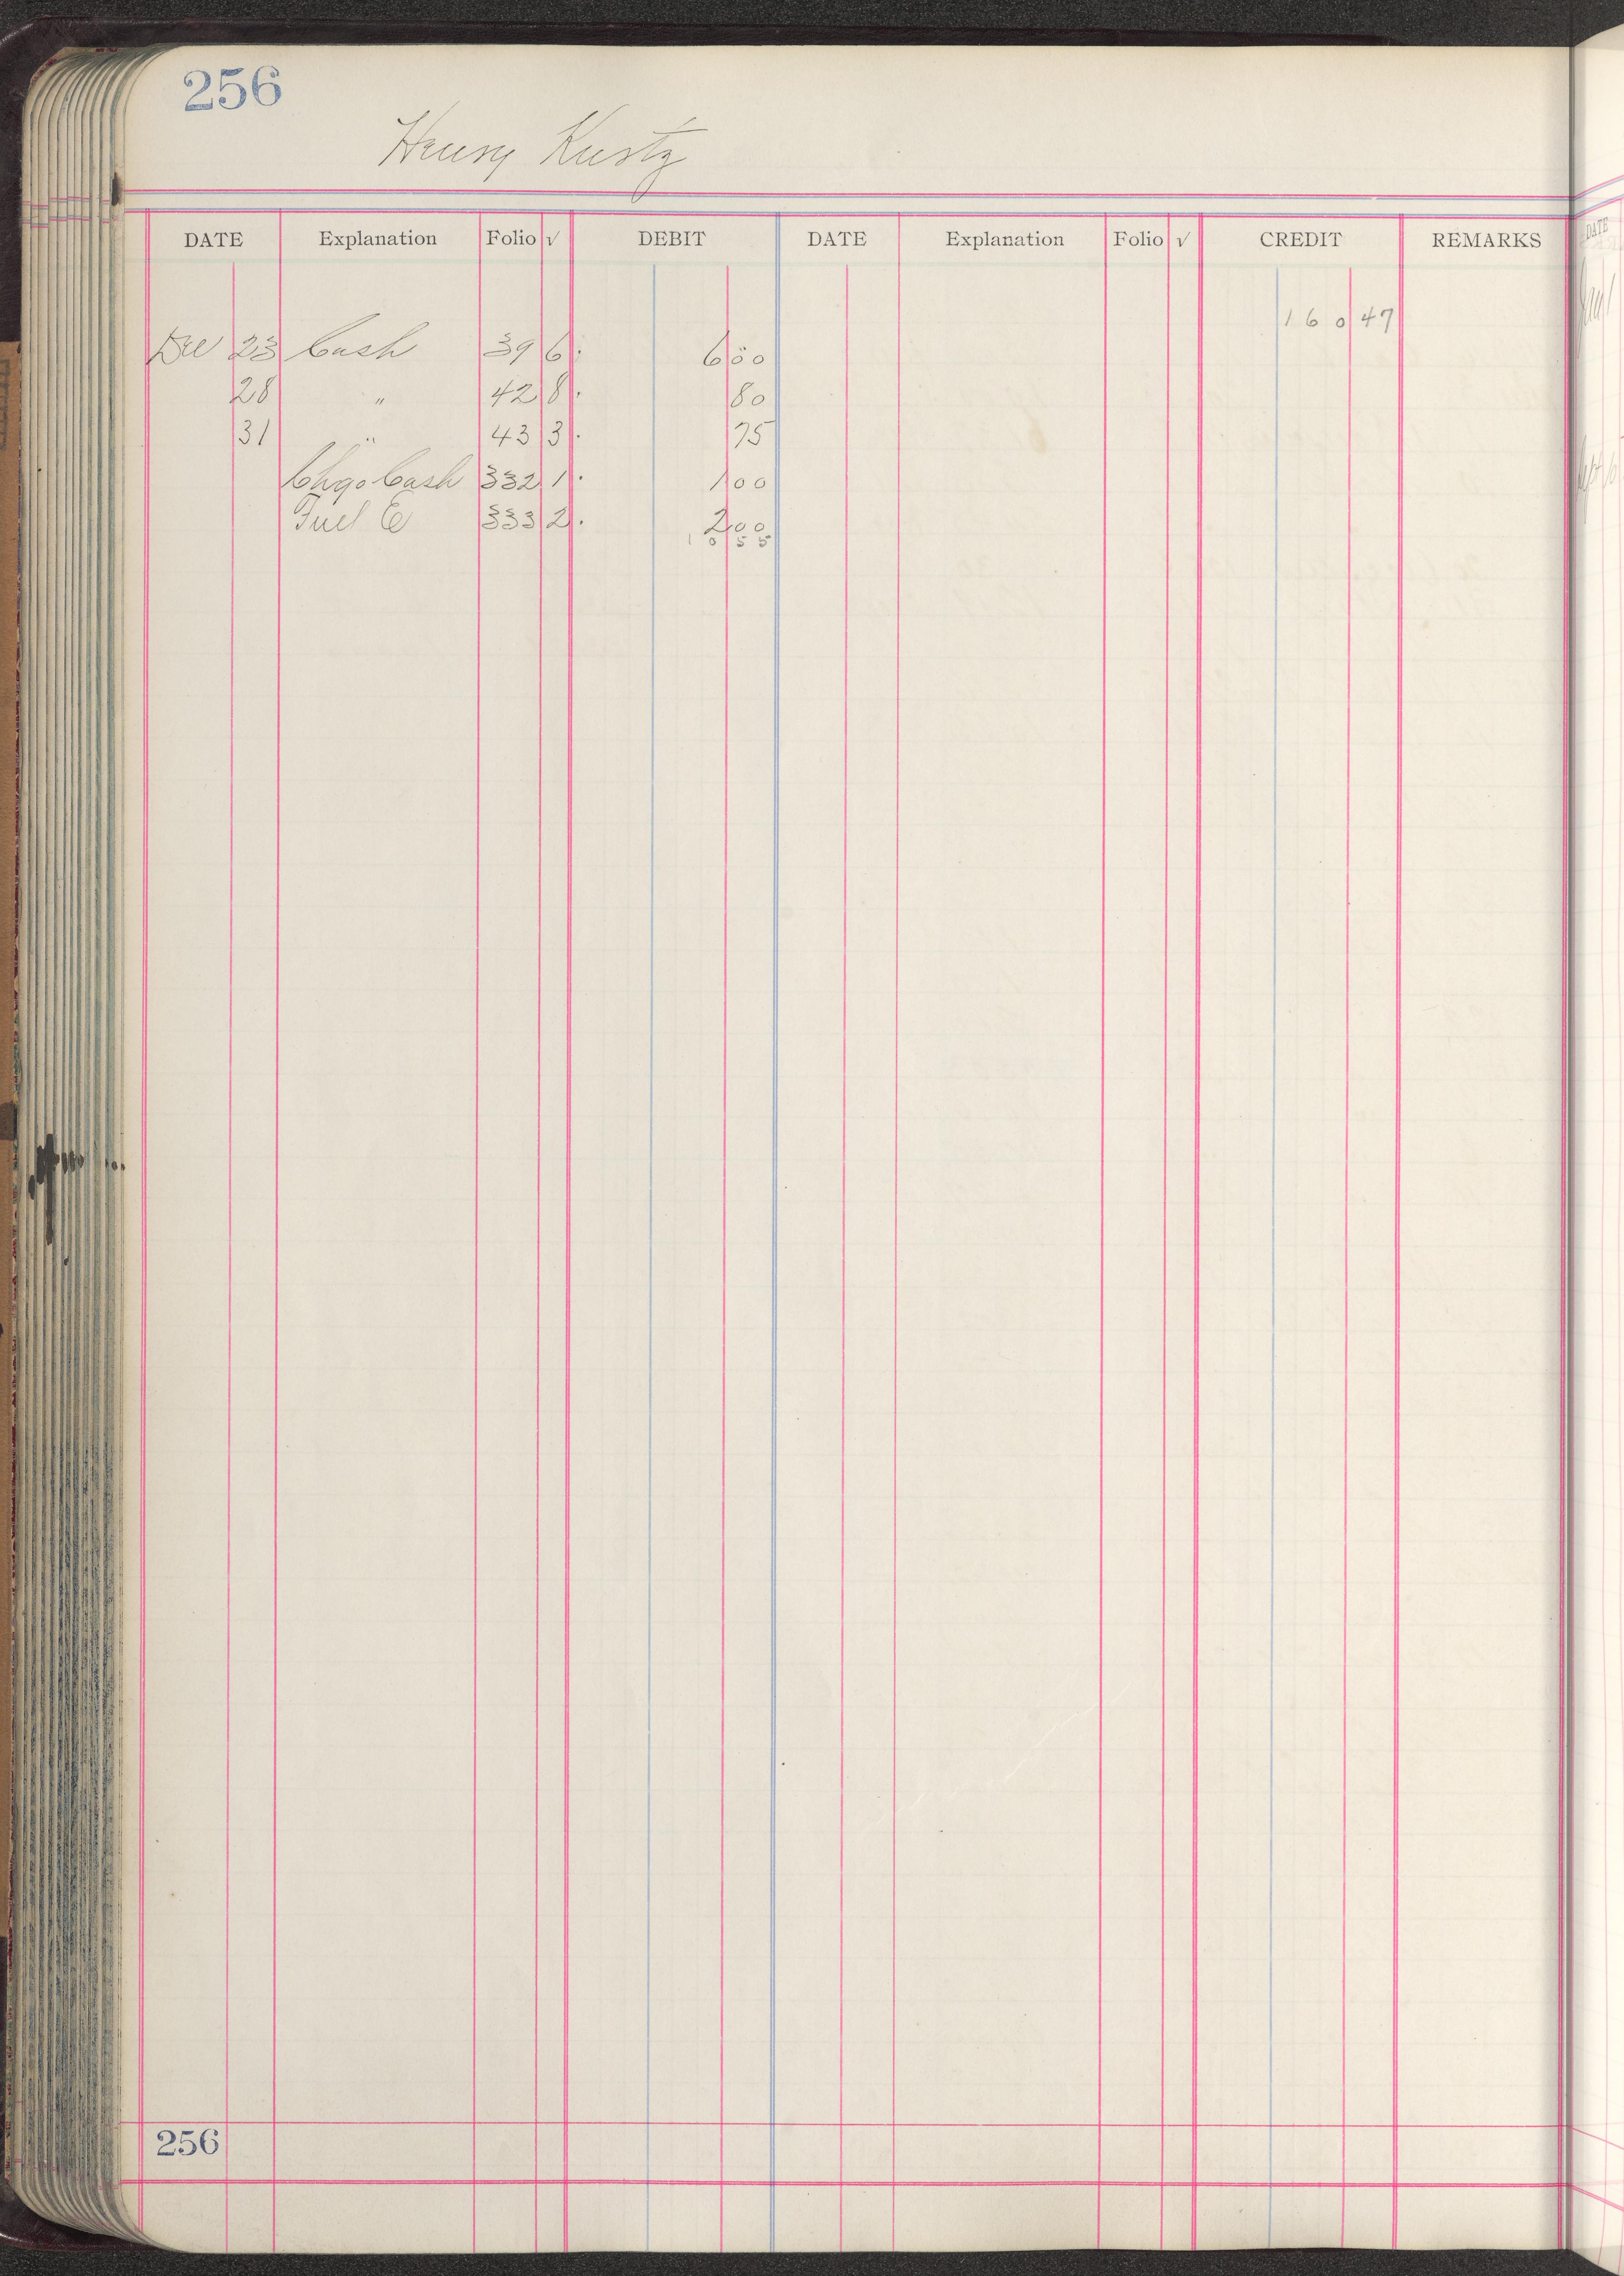 256
Henry Kurtz
DATE Explanation Folio √ DEBIT DATE Explanation Folio √ CREDIT REMARKS
160 47
Dec 23 Cash 39 6 6 00
28 " 42 8 80
31 " 43 3 75
Chgo Cash 332 1 1 00
Fuel E 333 2 2 00
10 55
256
DATE
Jan 1